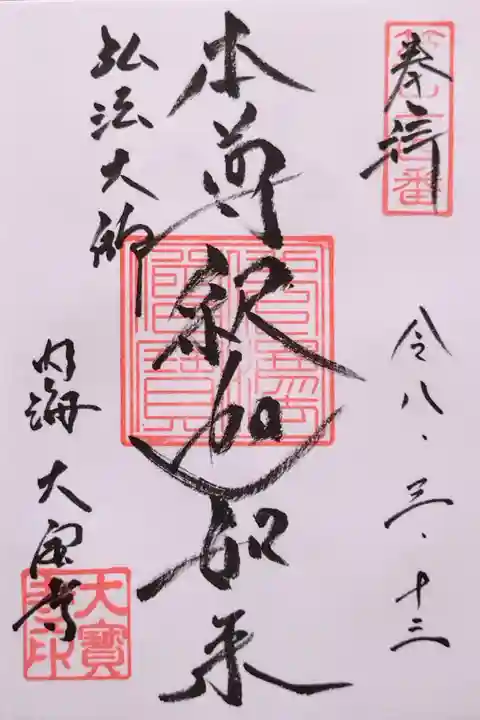 奉拝
令八・三・十三
本尊釈迦如来
弘法大師
内海 大宝寺
大寶寺印